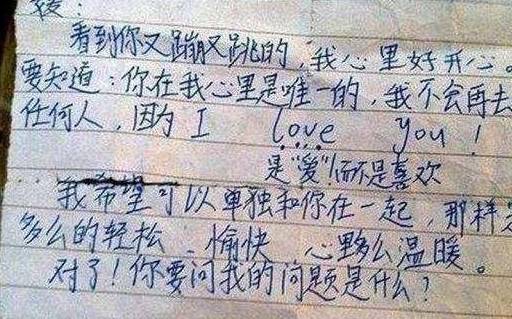 看到你又蹦又跳的，我心里好开心。
要知道：你在我心里是唯一的，我不会再去
任何人，因为 I love you！
是“爱”！而不是喜欢
我希望可以单独和你在一起，那样
多么的轻松、愉快 心里多么温暖。
对了！你要问我的问题是什么？